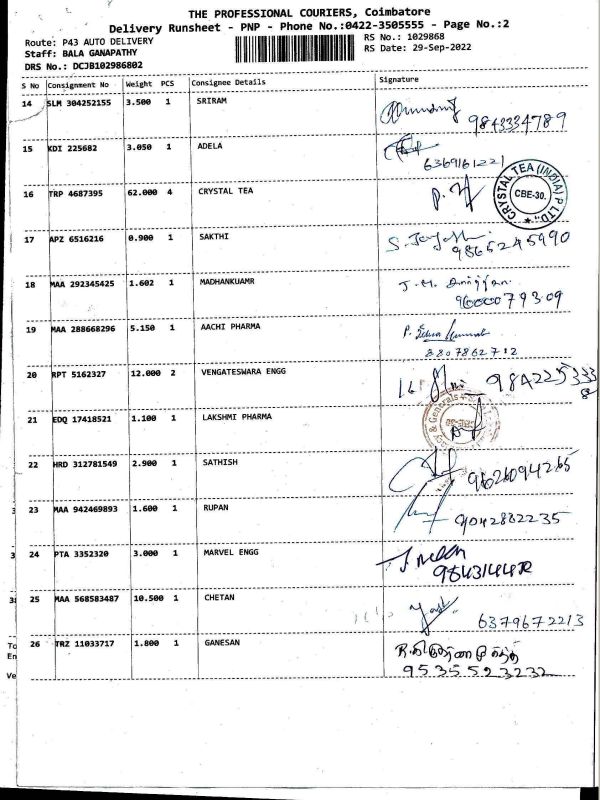 THE PROFESSIONAL COURIERS, Coimbatore
Delivery Runsheet - PNP - Phone No.:0422-3505555 - Page No.:2
Route: P43 AUTO DELIVERY
RS No.: 1029868
Staff: BALA GANAPATHY
RS Date: 29-Sep-2022
DRS No.: DCJB102986802
S No Consignment No Weight PCS Consignee Details Signature
14 SLM 304252155 3.500 1 SRIRAM 9843334789
15 KDI 225682 3.050 1 ADELA 6369161221
16 TRP 4687395 62.000 4 CRYSTAL TEA
CRYSTAL TEA (INDIA) P LTD.,
CBE-30.
17 APZ 6516216 0.900 1 SAKTHI 9865245990
18 MAA 292345425 1.602 1 MADHANKUAMR J.M. 9600079309
19 MAA 288668296 5.150 1 AACHI PHARMA P. 8807862712
20 RPT 5162327 12.000 2 VENGATESWARA ENGG
21 EDQ 17418521 1.100 1 LAKSHMI PHARMA
& Generals
22 HRD 312781549 2.900 1 SATHISH 9626094265
23 MAA 942469893 1.600 1 RUPAN 9042882235
24 PTA 3352320 3.000 1 MARVEL ENGG
25 MAA 568583487 10.500 1 CHETAN 6379672213
26 TRZ 11033717 1.800 1 GANESAN
9535523232
To
En
Ve